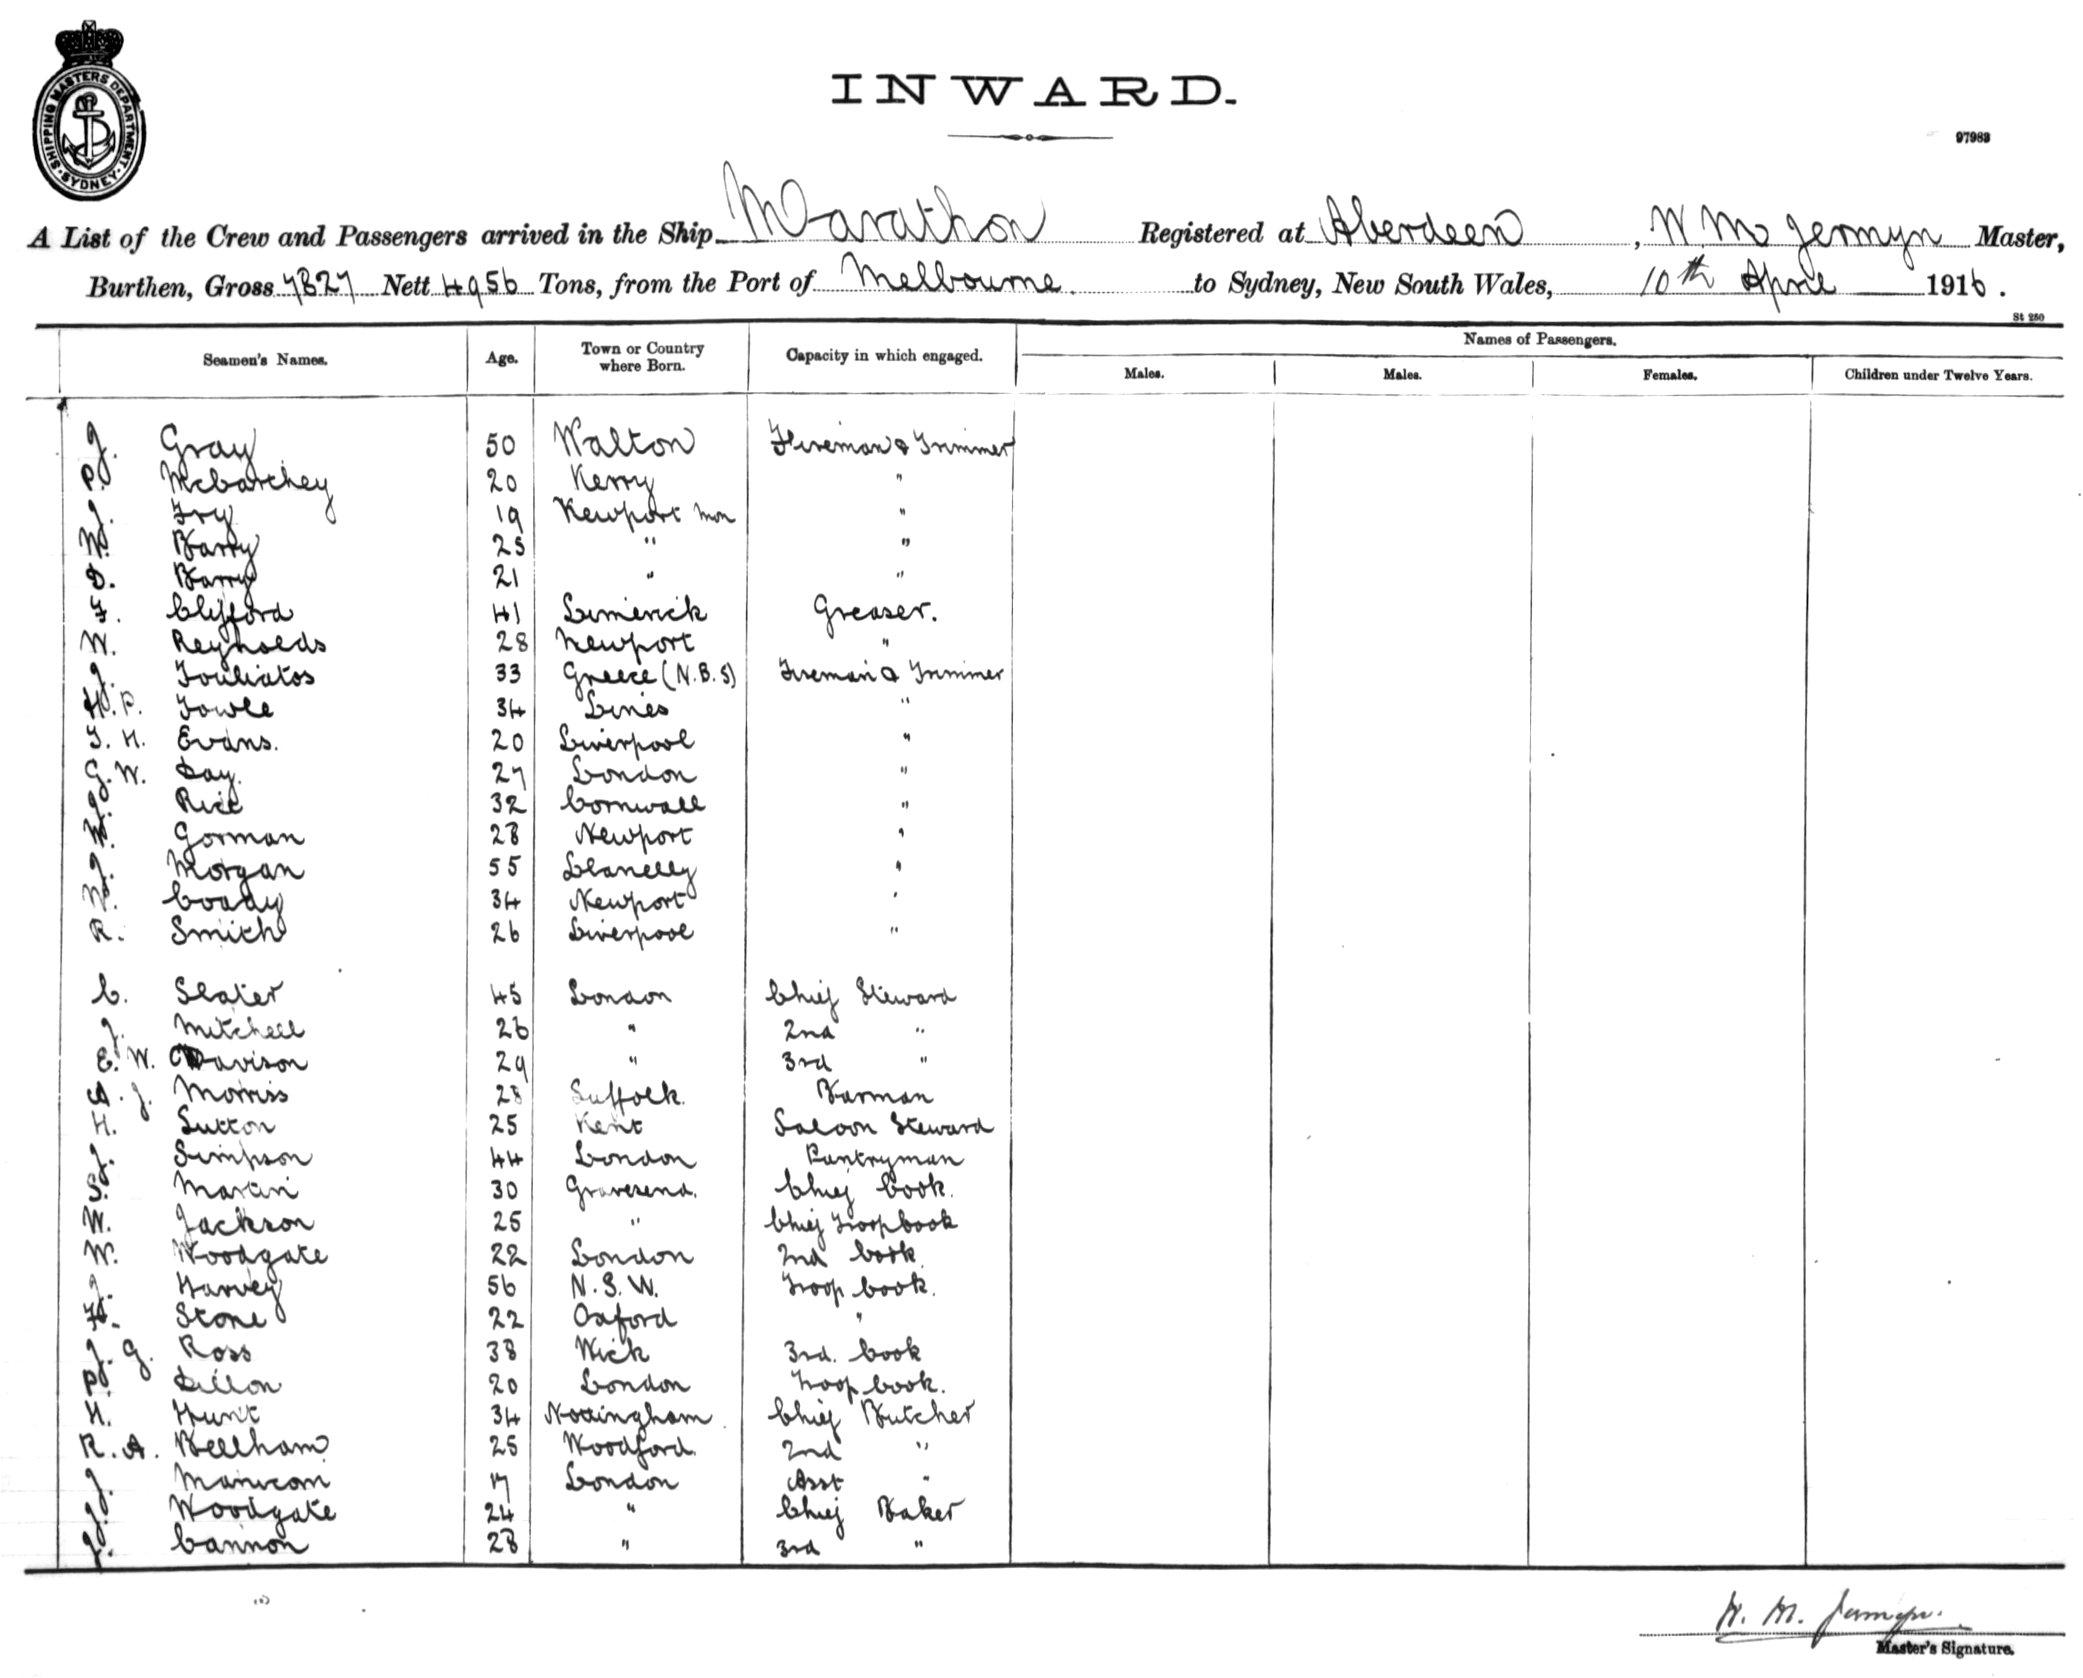 SHIPPING MASTERS DEPARTMENT · SYDNEY ·
INWARD.
97983
A List of the Crew and Passengers arrived in the Ship Marathon Registered at Aberdeen, W. M. Jermyn Master,
Burthen, Gross 7827 Nett 4956 Tons, from the Port of Melbourne to Sydney, New South Wales, 10th April 1916.
St 250
Seamen's Names. Age. Town or Country where Born. Capacity in which engaged. Names of Passengers.
Males. Males. Females. Children under Twelve Years.
J. Gray 50 Walton Fireman & Trimmer
P. McCarthey 20 Kerry "
J. Fry 19 Newport Mon "
W. Barry 25 " "
D. Barry 21 " "
F. Clifford 41 Limerick Greaser.
W. Reynolds 28 Newport "
J. Fouliatos 33 Greece (N.B.S) Fireman & Trimmer
H. P. Towle 34 Lines "
T. H. Evans. 20 Liverpool "
G. W. Day. 27 London "
J. Rice 32 Cornwall "
W. Gorman 28 Newport "
J. Morgan 55 Llanelly "
W. Coady 34 Newport "
R. Smith 26 Liverpool "
C. Slater 45 London Chief Steward
J. Mitchell 26 " 2nd "
E. W. Davison 29 " 3rd "
A. J. Morriss 28 Suffolk. Barman
H. Sutton 25 Kent Saloon Steward
J. Simpson 44 London Pantryman
S. Martin 30 Gravesend. Chief Cook.
W. Jackson 25 " Chief Troop Cook
W. Woodgate 22 London 2nd Cook
J. Harvey 56 N.S.W. Troop Cook.
H. Stone 22 Oxford "
J. G. Ross 38 Wick 3rd. Cook
P. Dillon 20 London Troop Cook.
H. Hunt 34 Nottingham Chief Butcher
R. A. Bellham 25 Woodford. 2nd "
J. Manicom 17 London Asst "
J. Woodgate 24 " Chief Baker
J. Cannon 28 " 3rd "
W. M. Jermyn.
Master's Signature.